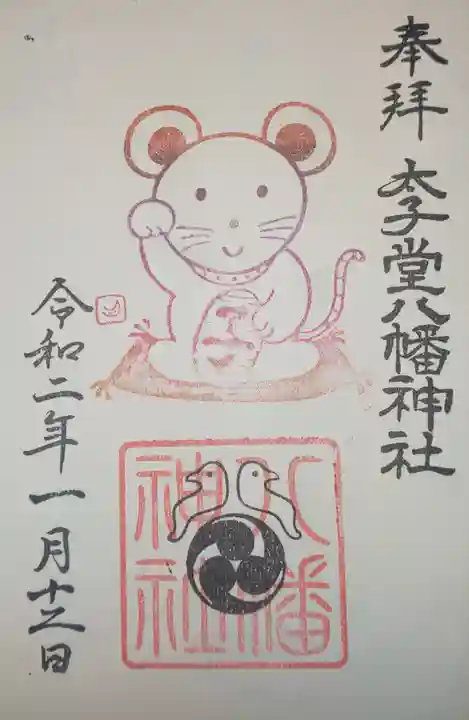 奉拝 太子堂八幡神社
令和二年一月十二日
八幡
神社